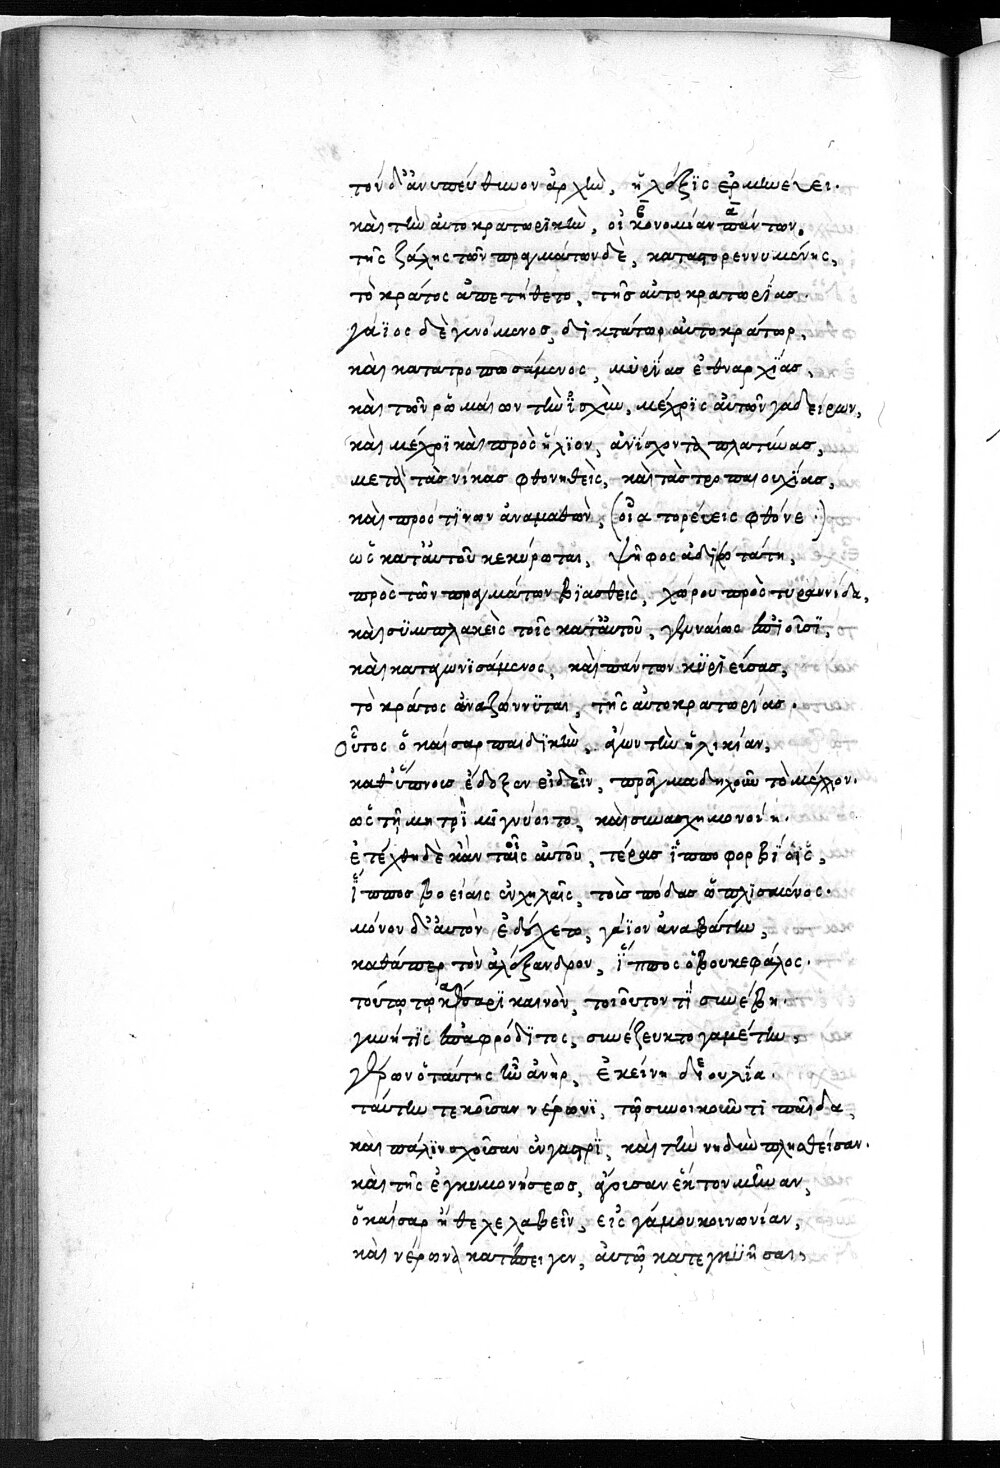 τὸν δ' ἀνυπεύθυνον ἀρχὴν, ἡ λέξϊς ἑρμηνεύει.
καὶ τὴν αὐτοκρατωρϊκὴν, οἰκονομίαν πάντων.
τῆς ζάλης τῶν πραγμάτων δὲ, καταστορεννυμένης,
τὸ κράτος ἀπετίθετο, τῆς αὐτοκρατωρίας.
γάϊος δὲ γενόμενος, δικτάτωρ αὐτοκράτωρ,
καὶ κατατροπωσάμενος, μυρίας ἐθναρχΐας,
καὶ τῶν ῥωμαίων τὴν ἰσχὺν, μέχρϊς αὐτῶν γαδείρων,
καὶ μέχρϊ καὶ πρὸς ἥλϊον, ἀνΐσχοντα πλατύνας,
μετὰ τὰς νίκας φθονηθεὶς, καὶ τὰς τροπαιουχΐας,
καὶ πρός τϊνων ἀναμαθὼν, (οἷα τορεύεις φθόνε.)
ὡς κατ' αὐτοῦ κεκύρωται, ψῆφος ἀδικωτάτη,
πρὸς τῶν πραγμάτων βϊασθεὶς, χώρου πρὸς τυραννίδα,
καὶ συμπλακεὶς τοῖς κατ' αὐτοῦ, γενναίως ἐπϊοῦσϊ,
καὶ καταγωνϊσάμενος, καὶ πάντων κϋρϊεύσας,
τὸ κράτος ἀναζώννϋται, τῆς αὐτοκρατωρίας.
οὗτος ὁ καῖσαρ παιδϊκὴν, ἄγων τὴν ἡλικίαν,
καθ' ὕπνοις ἔδοξεν εἰδεῖν, πρᾶγμα δηλοῦν τὸ μέλλον.
ὡς τῇ μητρὶ μϊγνύοιτο, καὶ συνασχημονοίη.
ἐτέχθη δὲ κἀν ταῖς αὐτοῦ, τέρας ἱπποφορβΐοις,
ἵππος βοείαις ἐν χηλαῖς, τοὺς πόδας ὡπλϊσμένος.
μόνον δ' αὐτὸν ἐδέχετο, γάϊον ἀναβάτην,
καθάπερ τὸν ἀλέξανδρον, ἵππος ὁ βουκεφάλος.
τούτῳ τῷ καίσαρϊ καινὸν, τοιοῦτον τϊ συνέβη.
γυνή τϊς ἐπαφρόδϊτος, συνέζευκτο γαμέτην,
νέρων ὁ ταύτης ἦν ἀνὴρ, ἐκείνη δὲ ἰουλία.
ταύτην τεκοῦσαν νέρωνϊ, τῷ συνοικοῦντι παῖδα,
καὶ πάλϊν σχοῦσαν ἐν γαστρὶ, καὶ τὴν νηδὺν πλησθεῖσαν.
καὶ τῆς ἐγκυμονήσεως, ἄγουσαν ἕκτον μῆναν,
ὁ καῖσαρ ἤθελε λαβεῖν, εἰς γάμου κοινωνίαν,
καὶ νέρωνα κατήπειγεν, αὐτῷ κατεγγϋῆσαι,